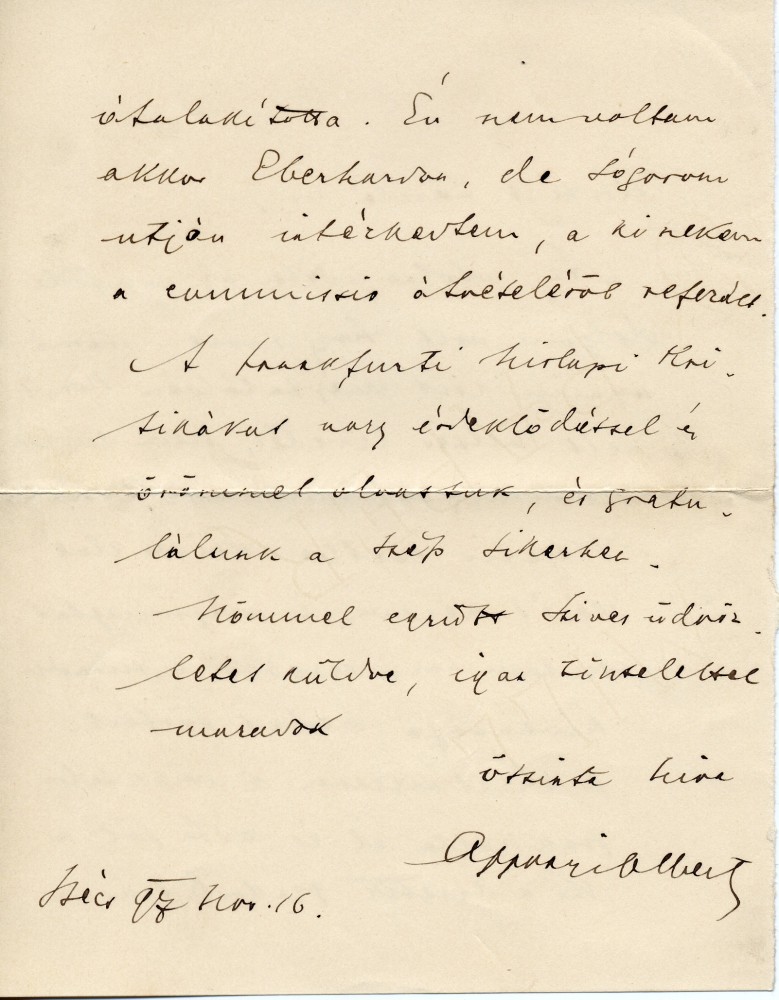 átalakította. Én nem voltam
akkor Eberhardon, de sógorom
utján intézkedtem, a ki nekem
a commissio átvételéről referált.
A frankfurti hirlapi kri-
tikákat nagy érdeklődéssel és
örömmel olvastuk, és gratu-
lálunk a szép sikerhez.
Nőmmel együtt szives üdvöz-
letet küldve, igaz tisztelettel
maradok
őszinte hive
Apponyi Albert
Bécs 97 Nov. 16.